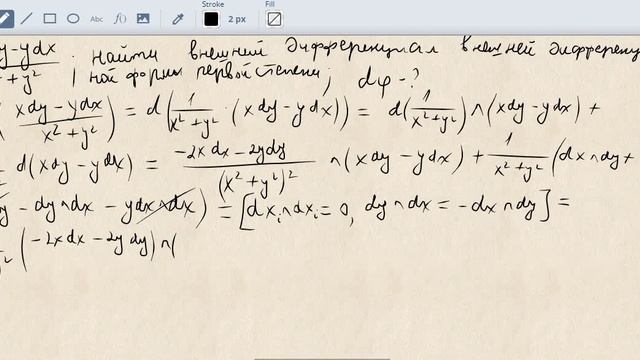 Stroke Fill
Abc f() 2 px
y-ydx . найти внешний дифференциал внешней дифференц
+ y² 1 ной формы первой степени; dφ - ?
xdy - ydx / x² + y² ) = d( 1 / x² + y² · (xdy - ydx)) = d( 1 / x² + y² ) ∧ (xdy - ydx) +
d(xdy - ydx) = -2xdx - 2ydy / (x² + y²)² ∧ (xdy - ydx) + 1 / x² + y² (dx∧dy +
y - dy∧dx - ydx∧dx) = [dxᵢ∧dxᵢ = 0, dy∧dx = -dx∧dy] =
(-2xdx - 2ydy)∧(